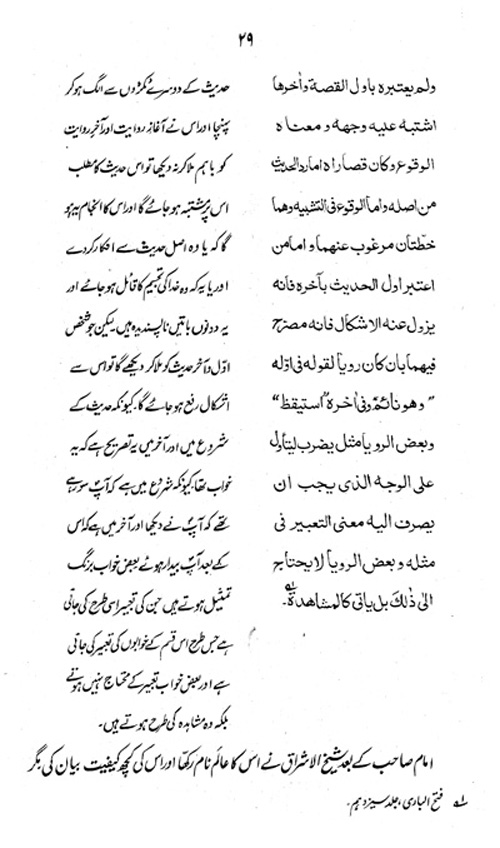 ۲۹
ولم يعتبره باول القصة واخرها
اشتبه عليه وجهه ومعناه
الوقوع وكان قصاراه امارد الحديث
من اصله واما الوقوع فى التشبيه وهما
خطتان مرغوب عنهما واما من
اعتبر اول الحديث بآخره فانه
يزول عنه الاشكال فانه مصرح
فيهما بان كان رويا لقوله فى اوله
”وهو نائم“ وفى اخره ”استيقظ“
وبعض الرويا مثل يضرب ليتأول
على الوجه الذى يجب ان
يصرف اليه معنى التعبير فى
مثله وبعض الرويا لا يحتاج
الى ذٰلك بل ياتى كالمشاهدة۔ لہ
حدیث کے دوسرے ٹکڑوں سے الگ ہو کر
پہنچا اور اس نے آغاز روایت اور آخر روایت
کو باہم ملا کر نہ دیکھا تو اس حدیث کا مطلب
اس پر مشتبہ ہو جائے گا اور اس کا انجام یہ ہو
گا کہ یا وہ اصل حدیث سے انکار کر دے
اور یا یہ کہ وہ خدا کی تجسیم کا قائل ہو جائے اور
یہ دونوں باتیں ناپسندیدہ ہیں لیکن جو شخص
اوّل و آخر حدیث کو ملا کر دیکھے گا تو اس سے
اشکال رفع ہو جائے گا۔ کیونکہ حدیث کے
شروع میں اور آخر میں یہ تصریح ہے کہ یہ
خواب تھا کیونکہ شروع میں ہے کہ آپؐ سو رہے
تھے کہ آپؐ نے دیکھا اور آخر میں ہے کہ اس
کے بعد آپؐ بیدار ہوئے بعض خواب برنگ
تمثیل ہوتے ہیں جن کی تعبیر اسی طرح کی جاتی
ہے جس طرح اس قسم کے خوابوں کی تعبیر کی جاتی
ہے اور بعض خواب تعبیر کے محتاج نہیں ہوتے
بلکہ وہ مشاہدہ کی طرح ہوتے ہیں۔
امام صاحب کے بعد شیخ الاشراق نے اس کا عالم نام رکھا اور اس کی کچھ کیفیت بیان کی مگر
لہ فتح الباری، جلد سیزدہم۔